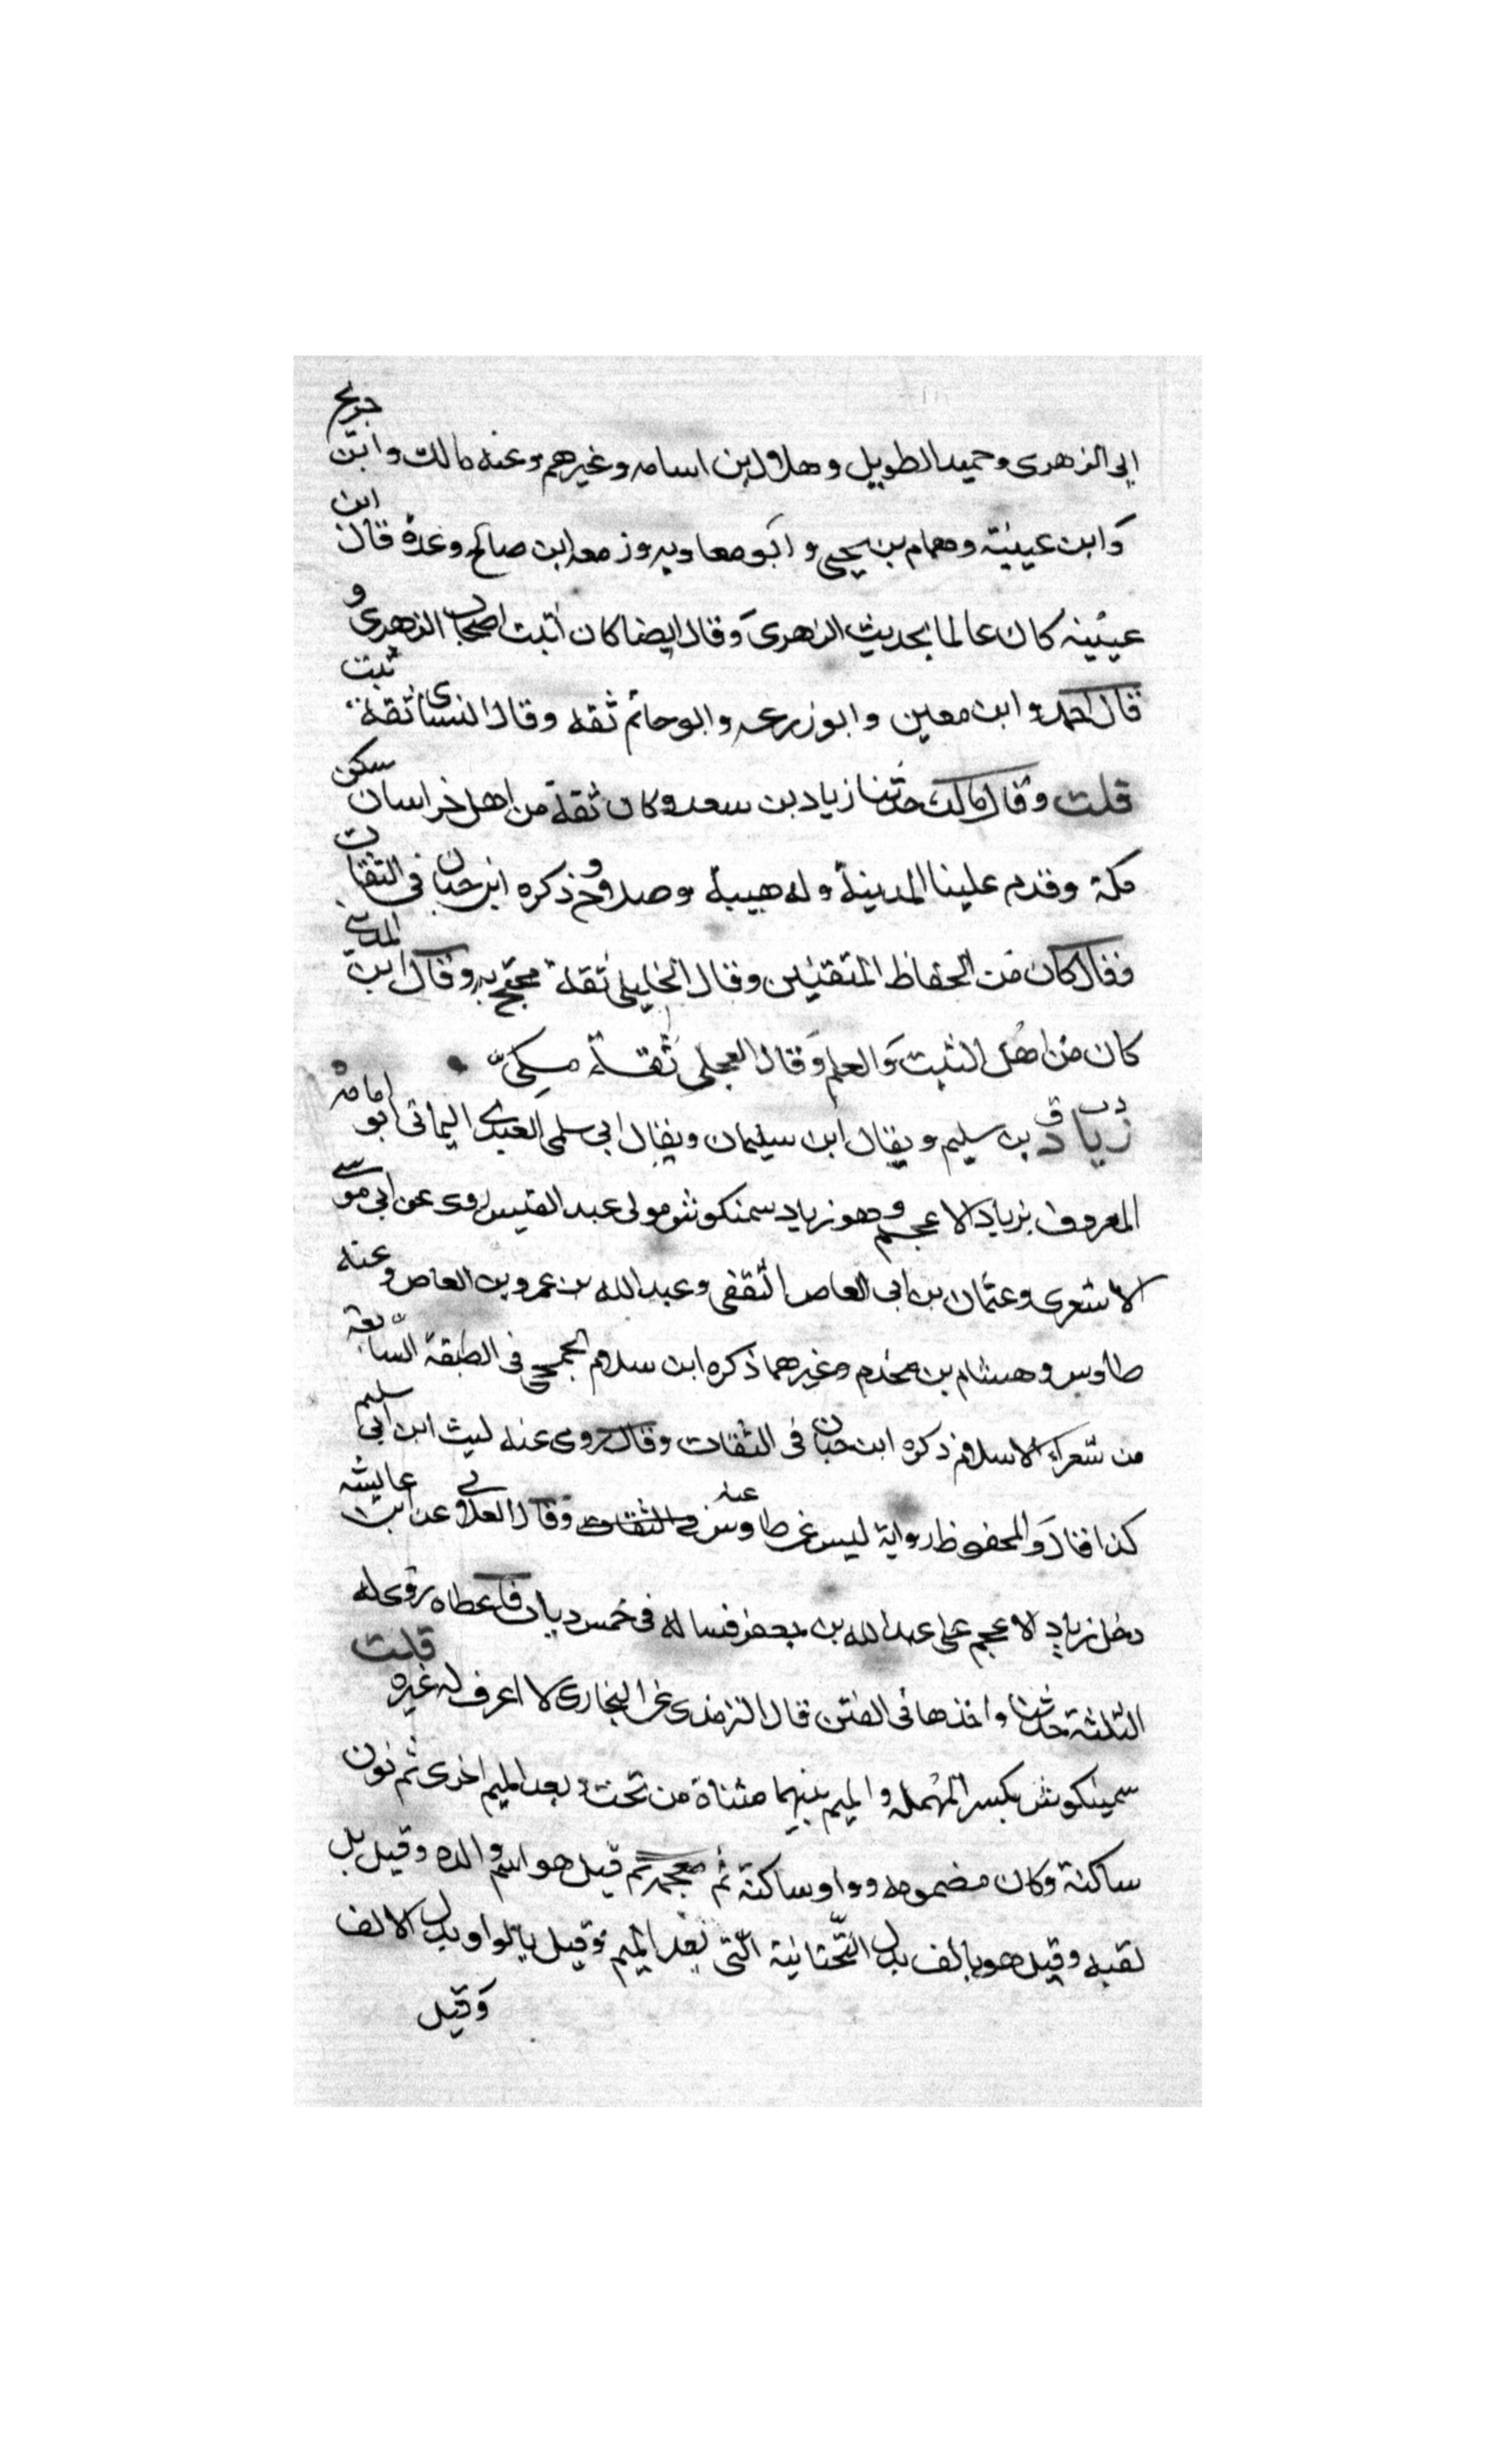 الى الزهرى وحميد الطويل وهلال ابن اسامه وغيرهم وعنه مالك وابن جريج
وابن عيينة وهمام بن يحيى وابو معاويه وزمعه ابن صالح وعدة قال ابن
عيينه كان عالما بحديث الزهرى وقال ايضا كان اثبت اصحاب الزهرى و
قال احمد وابن معين وابو زرعه وابو حاتم ثقه وقال النسائى ثقة ثبت
قلت وقال مالك حدثنا زياد بن سعد وكان ثقة من اهل خراسان سكن
مكة وقدم علينا المدينة وله هيبة وصلاح وذكره ابن حبان فى الثقات
فقال كان من الحفاظ المتقنين وقال الخليلى ثقة محتج به وقال ابن المدينى
كان من اهل التثبت والعلم وقال العجلى ثقة مكى
د ت ق زياد بن سليم ويقال ابن سليمان ويقال ابى سلمى العبدى اليمانى ابو امامه
المعروف بزياد الاعجم وهو زياد سمنكوش مولى عبد القيس روى عن ابى موسى
الاشعرى وعثمان بن ابى العاص الثقفى وعبد الله بن عمرو بن العاص وعنه
طاوس وهشام بن مخذم وغيرهما ذكره ابن سلام الجمحى فى الطبقة السابعة
من شعراء الاسلام ذكره ابن حبان فى الثقات وقال روى عنه ليث ابن ابى سليم
كذا قال والمحفوظ رواية ليس عن طاوس عنه فى الثقات وقال العلائى عن ابن عايشه
دخل زياد الاعجم على عبد الله بن جعفر فساله فى خمس ديات فاعطاه روى له
الثلثة حديثا واخذها فى الفتن قال الترمذى عن البخارى لا اعرف له غيره قلت
سمينكوش بكسر المهمله والميم بينهما مثناة من تحت وبعد الميم اخرى ثم نون
ساكنة وكان مضمومه وواو ساكنة ثم معجمة ثم قيل هو اسم والده وقيل بل
لقبه وقيل هو بالف بدل التحتانية التى بعد الميم وقيل بالواو بدل الالف
وقيل